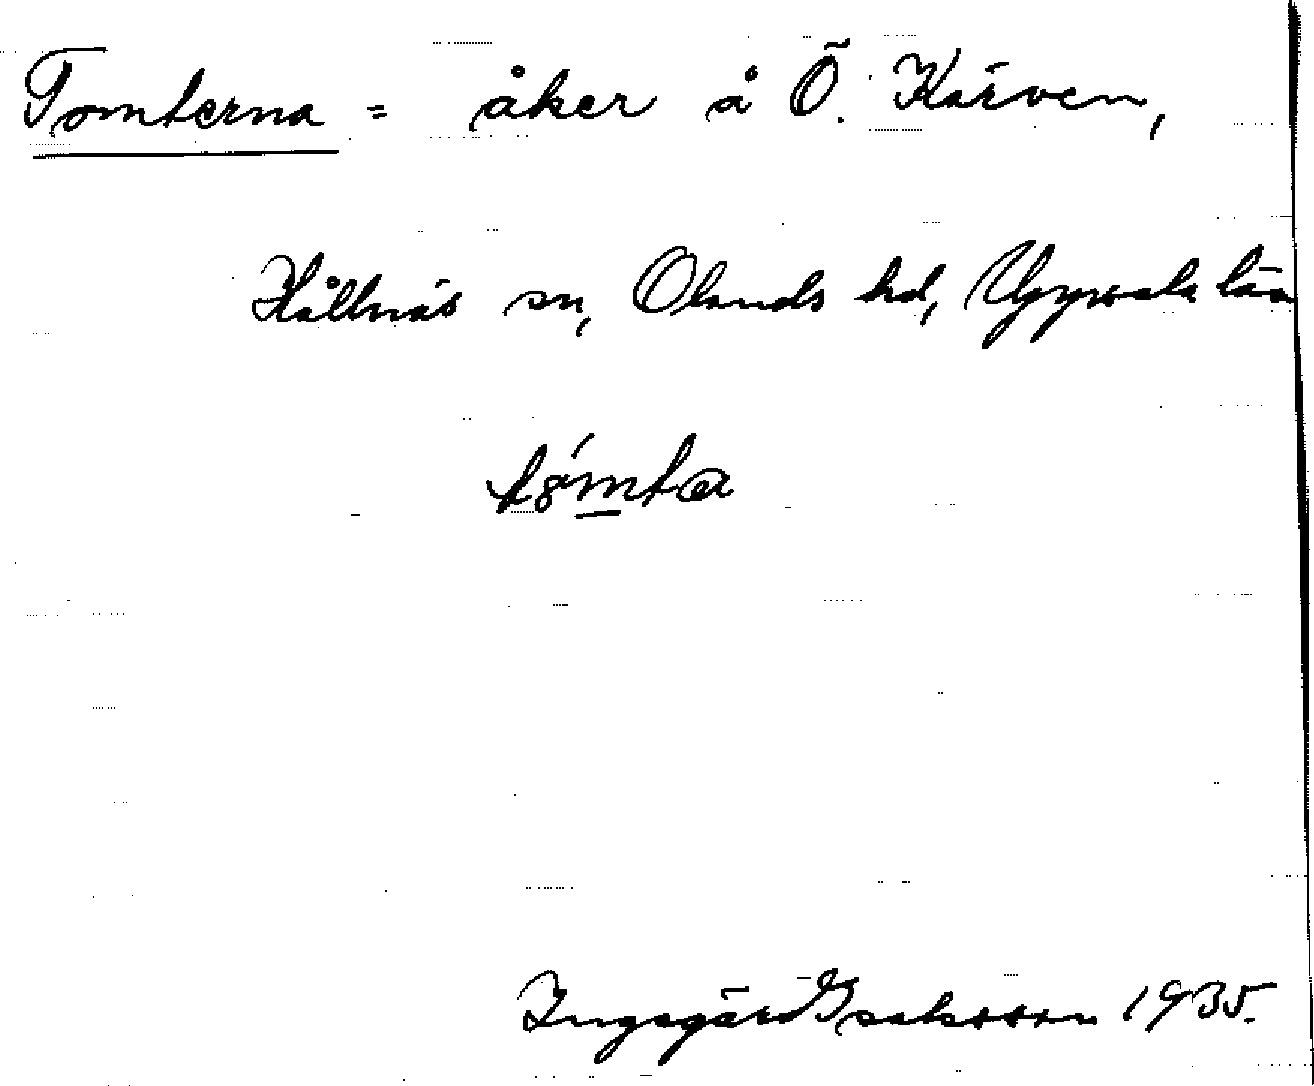 Tomterna = åker å Ö. Kärven,
Hållnäs sn, Olands hd, Uppsala län
Ingegärd Isaksson 1935.